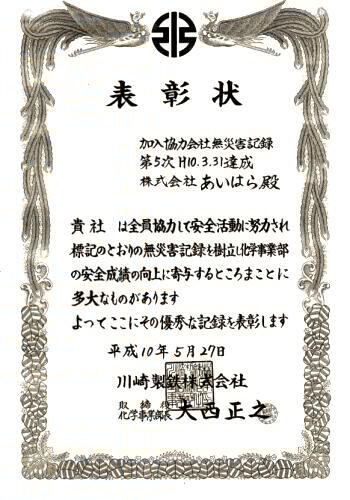 表彰状
加入協力会社無災害記録
第5次 H10.3.31達成
株式会社 あいはら殿
貴社 は全員協力して安全活動に努力され
標記のとおりの無災害記録を樹立し化学事業部
の安全成績の向上に寄与するところまことに
多大なものがあります
よってここにその優秀な記録を表彰します
平成10年5月27日
川崎製鉄株式会社
取締役
化学事業部長 大西正之